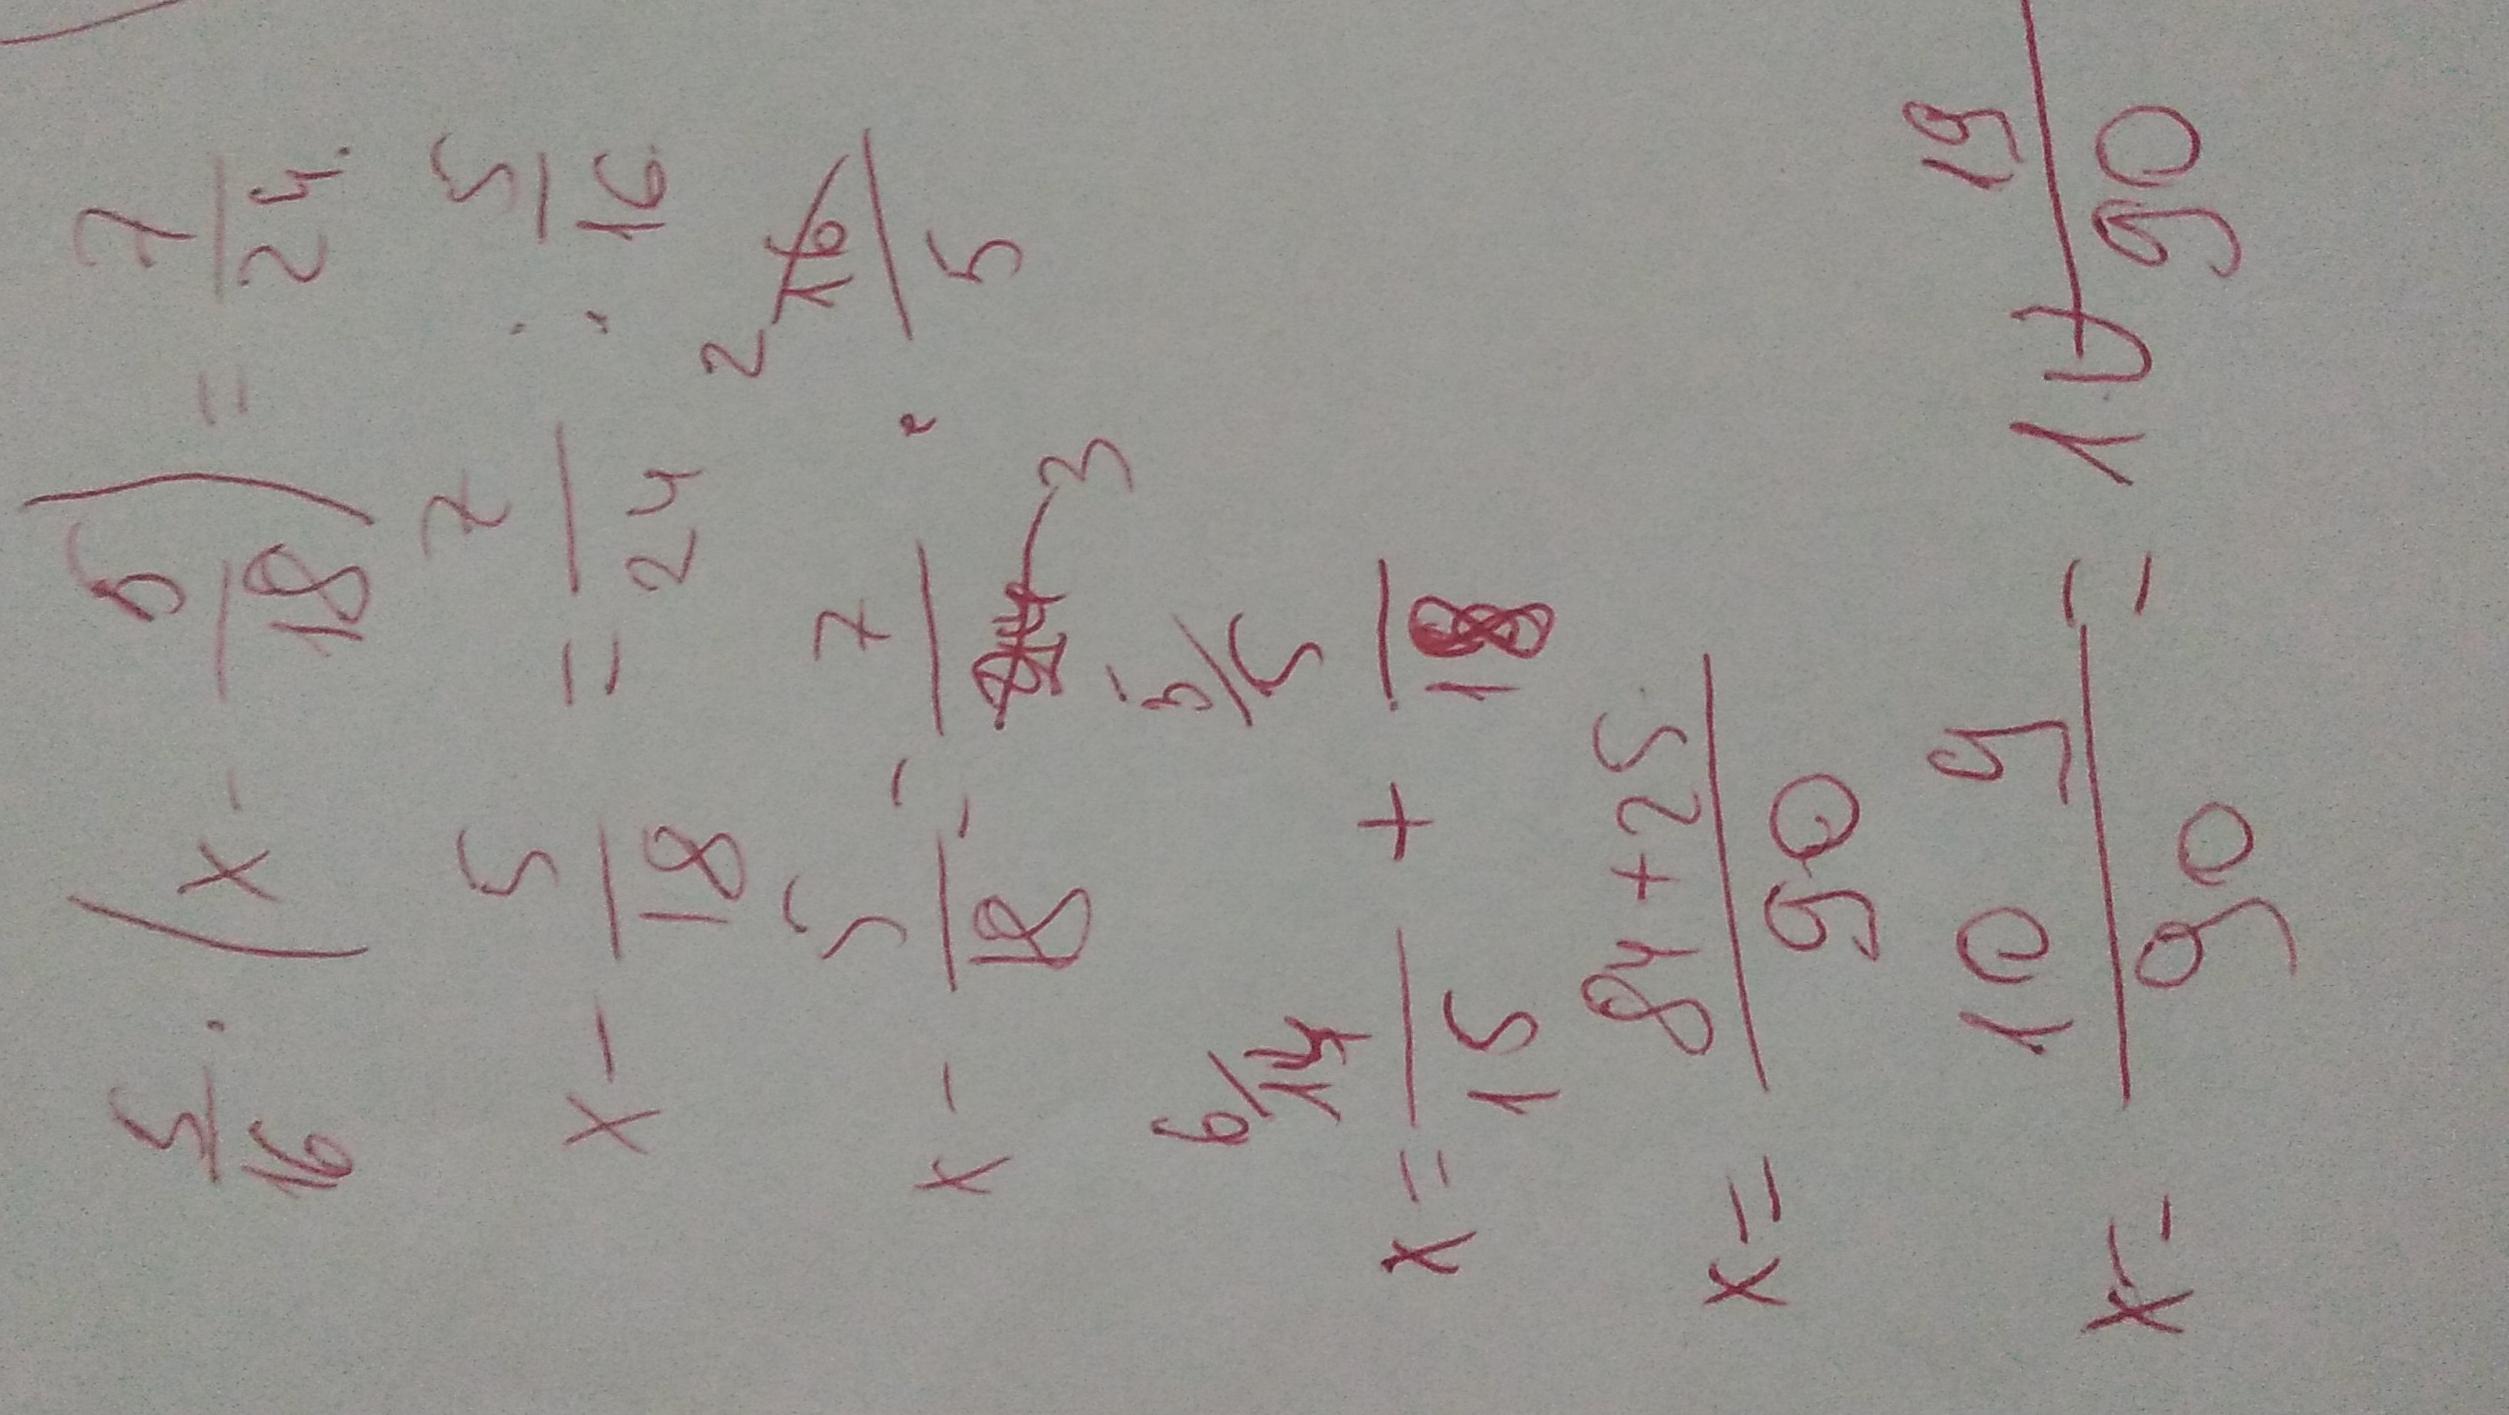 5/16 · (x - 5/18) = 7/24
x - 5/18 = 7/24 : 5/16
x - 5/18 = 7/24 3 · 2 16/5
x = 6/14/15 + 5/5/18
x = 84+25/90
x = 109/90 = 1 19/90